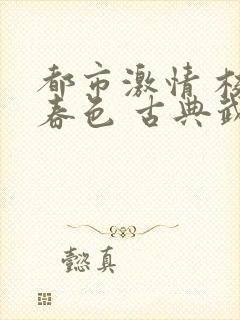 都市激情
春色 古典
懿真